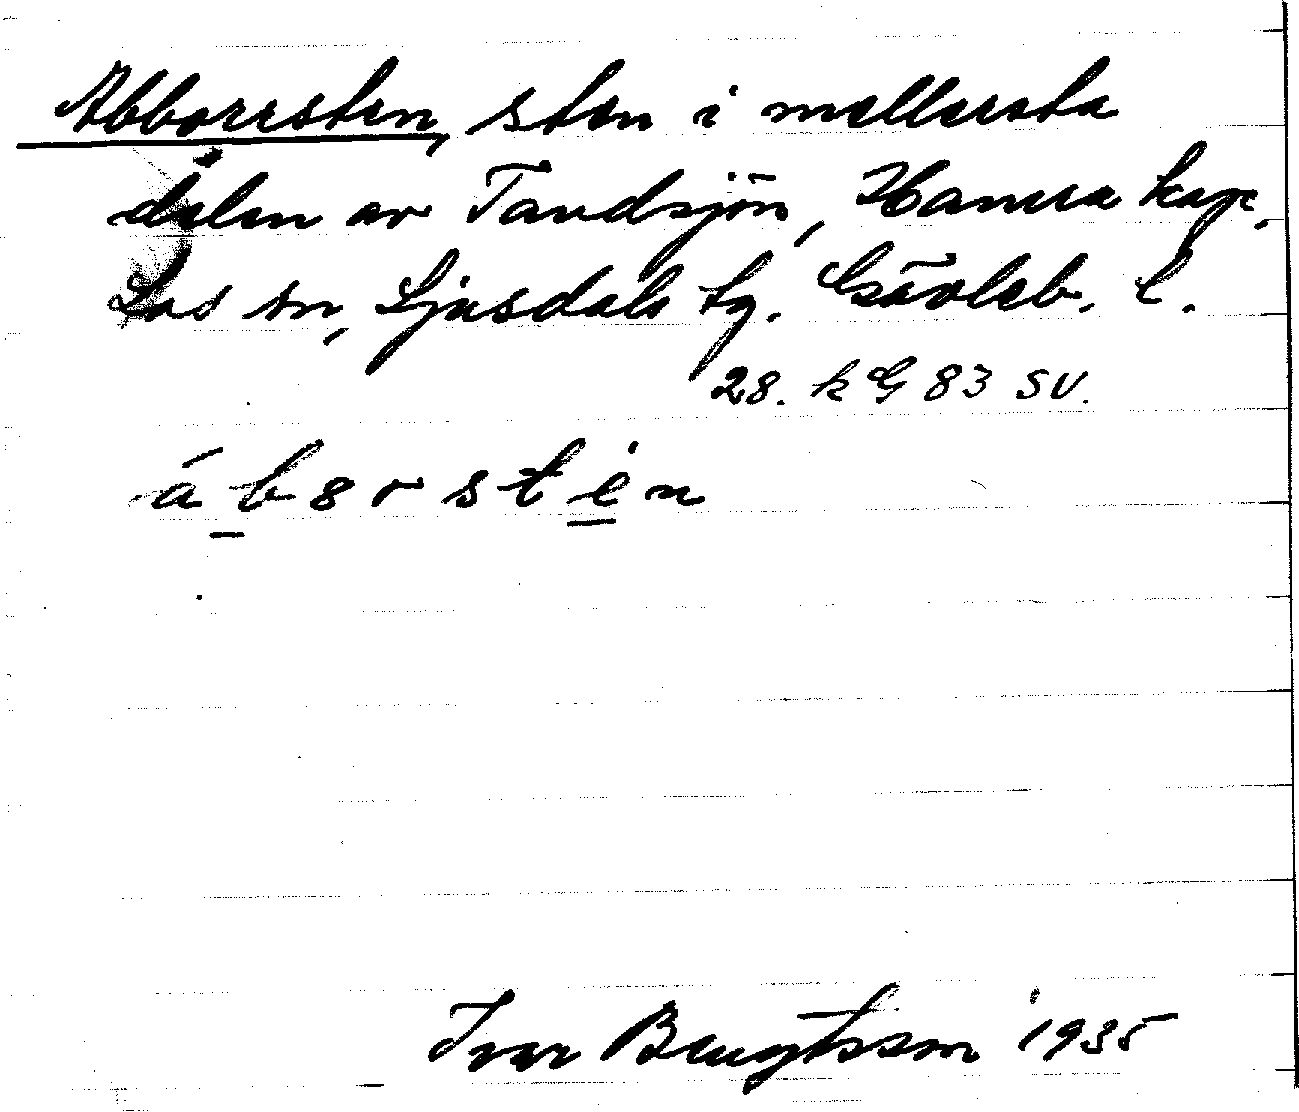 Abborrsten, sten i mellersta
delen av Tandsjön, Hamra kap.
Los sn, Ljusdals tg. Gävleb. l.
28. k G 83 SV.
ábo̵rstèn
Ivar Bengtsson 1935